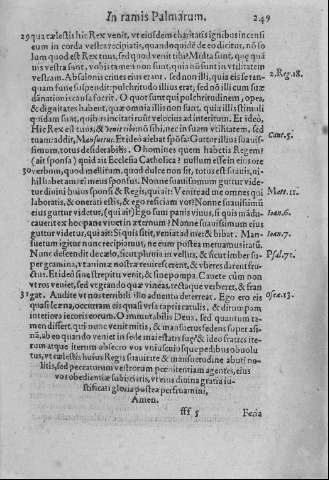 In ramis Palmarum. 249
29 qua cælestis hic Rex venit, vt eiusdem charitatis ignibus incensi
eum in corda vestra recipiatis, quando quidē de eo dicitur, nō so
lum quod est Rex tuus, sed quod venit tibi. Multa sunt, quę quā
uis vestra sunt, vobis tamen non sunt, quia nō sunt in vtilitatem
vestram. Absalonis crines eius erant, sed non illi, quia eis se ren-
quam fune suspendit: pulchritudo illius erat, sed nō illi cum suæ
dānationis causa fuerit. O quot sunt qui pulchritudinem, opes,
& dignitates habent, quæ omnia illis non sunt, quia illis stimuli
quidam sunt, quibus incitati ruūt velocius ad interitum. Et ideò,
Hic Rex est tuus, & venit tibi: non sibi, nec in suam vtilitatem, sed
tuam: addit, Mansuetus. Et ideò aiebat spōsa: Guttur illius suauis-
simum, totus desiderabilis. O homines quem habetis Regem?
(ait sponsa) quid ait Ecclesia Catholica? nullum esse in eius ore
30 verbum, quod mellitum, quod dulce non sit, totus est suauis, ni-
hil habet amari meus sponsus. Nonne suauissimum guttur vide-
tur diuini huius sponsi & Regis, qui ait: Venite ad me omnes qui
laboratis, & onerati estis, & ego reficiam vos? Nonne suauissimū
eius guttur videtur, (qui ait) Ego sum panis viuus, si quis mādu-
cauerit ex hoc pane viuet in æternum? Nonne suauissimum eius
guttur videtur, qui ait: Siquis sitit, veniat ad me: & bibat. Man-
suetum igitur nunc recipiamus, ne eum postea metuamus iratū.
Nunc descendit de cælo, sicut pluuia in vellus, & sicut imber su-
per gramina, vt animæ nostræ reuirescerent, & vberes darent fru-
ctus. Et ideò sine strepitu venit, & sine pompa. Cauete cùm non
vt ros veniet, sed vt grando quæ vineas, tectaque verberet, & fran
31 gat. Audite vt nos terribili illo aduentu deterreat. Ego ero eis
quasi leæna, occurram eis quasi vrsa raptis catulis, & dirumpam
interiora iecoris eorum. O immutabilis Deus, sed quantum ta-
men differt, qui nunc venit mitis, & mansuetus sedens super asi-
nā, ab eo quando veniet in sede maiestatis suę? & ideo fratres ite-
rum atque iterum obsecro vos vniuscuiusque pedibus obuolu
tus, vt cælestis huius Regis suauitate & mansuetudine abuti no-
litis, sed peccatorum vestrorum pœnitentiam agentes, eius
vos obedientiæ subijciatis, vt eius diuina gratia iu-
stificati gloria postea perfruamini,
Amen.
fff 5 Feria
2. Reg. 18.
Cant. 5.
Matt. 11.
Ioan. 6.
Ioan. 7.
Psal. 71.
Osea. 13.